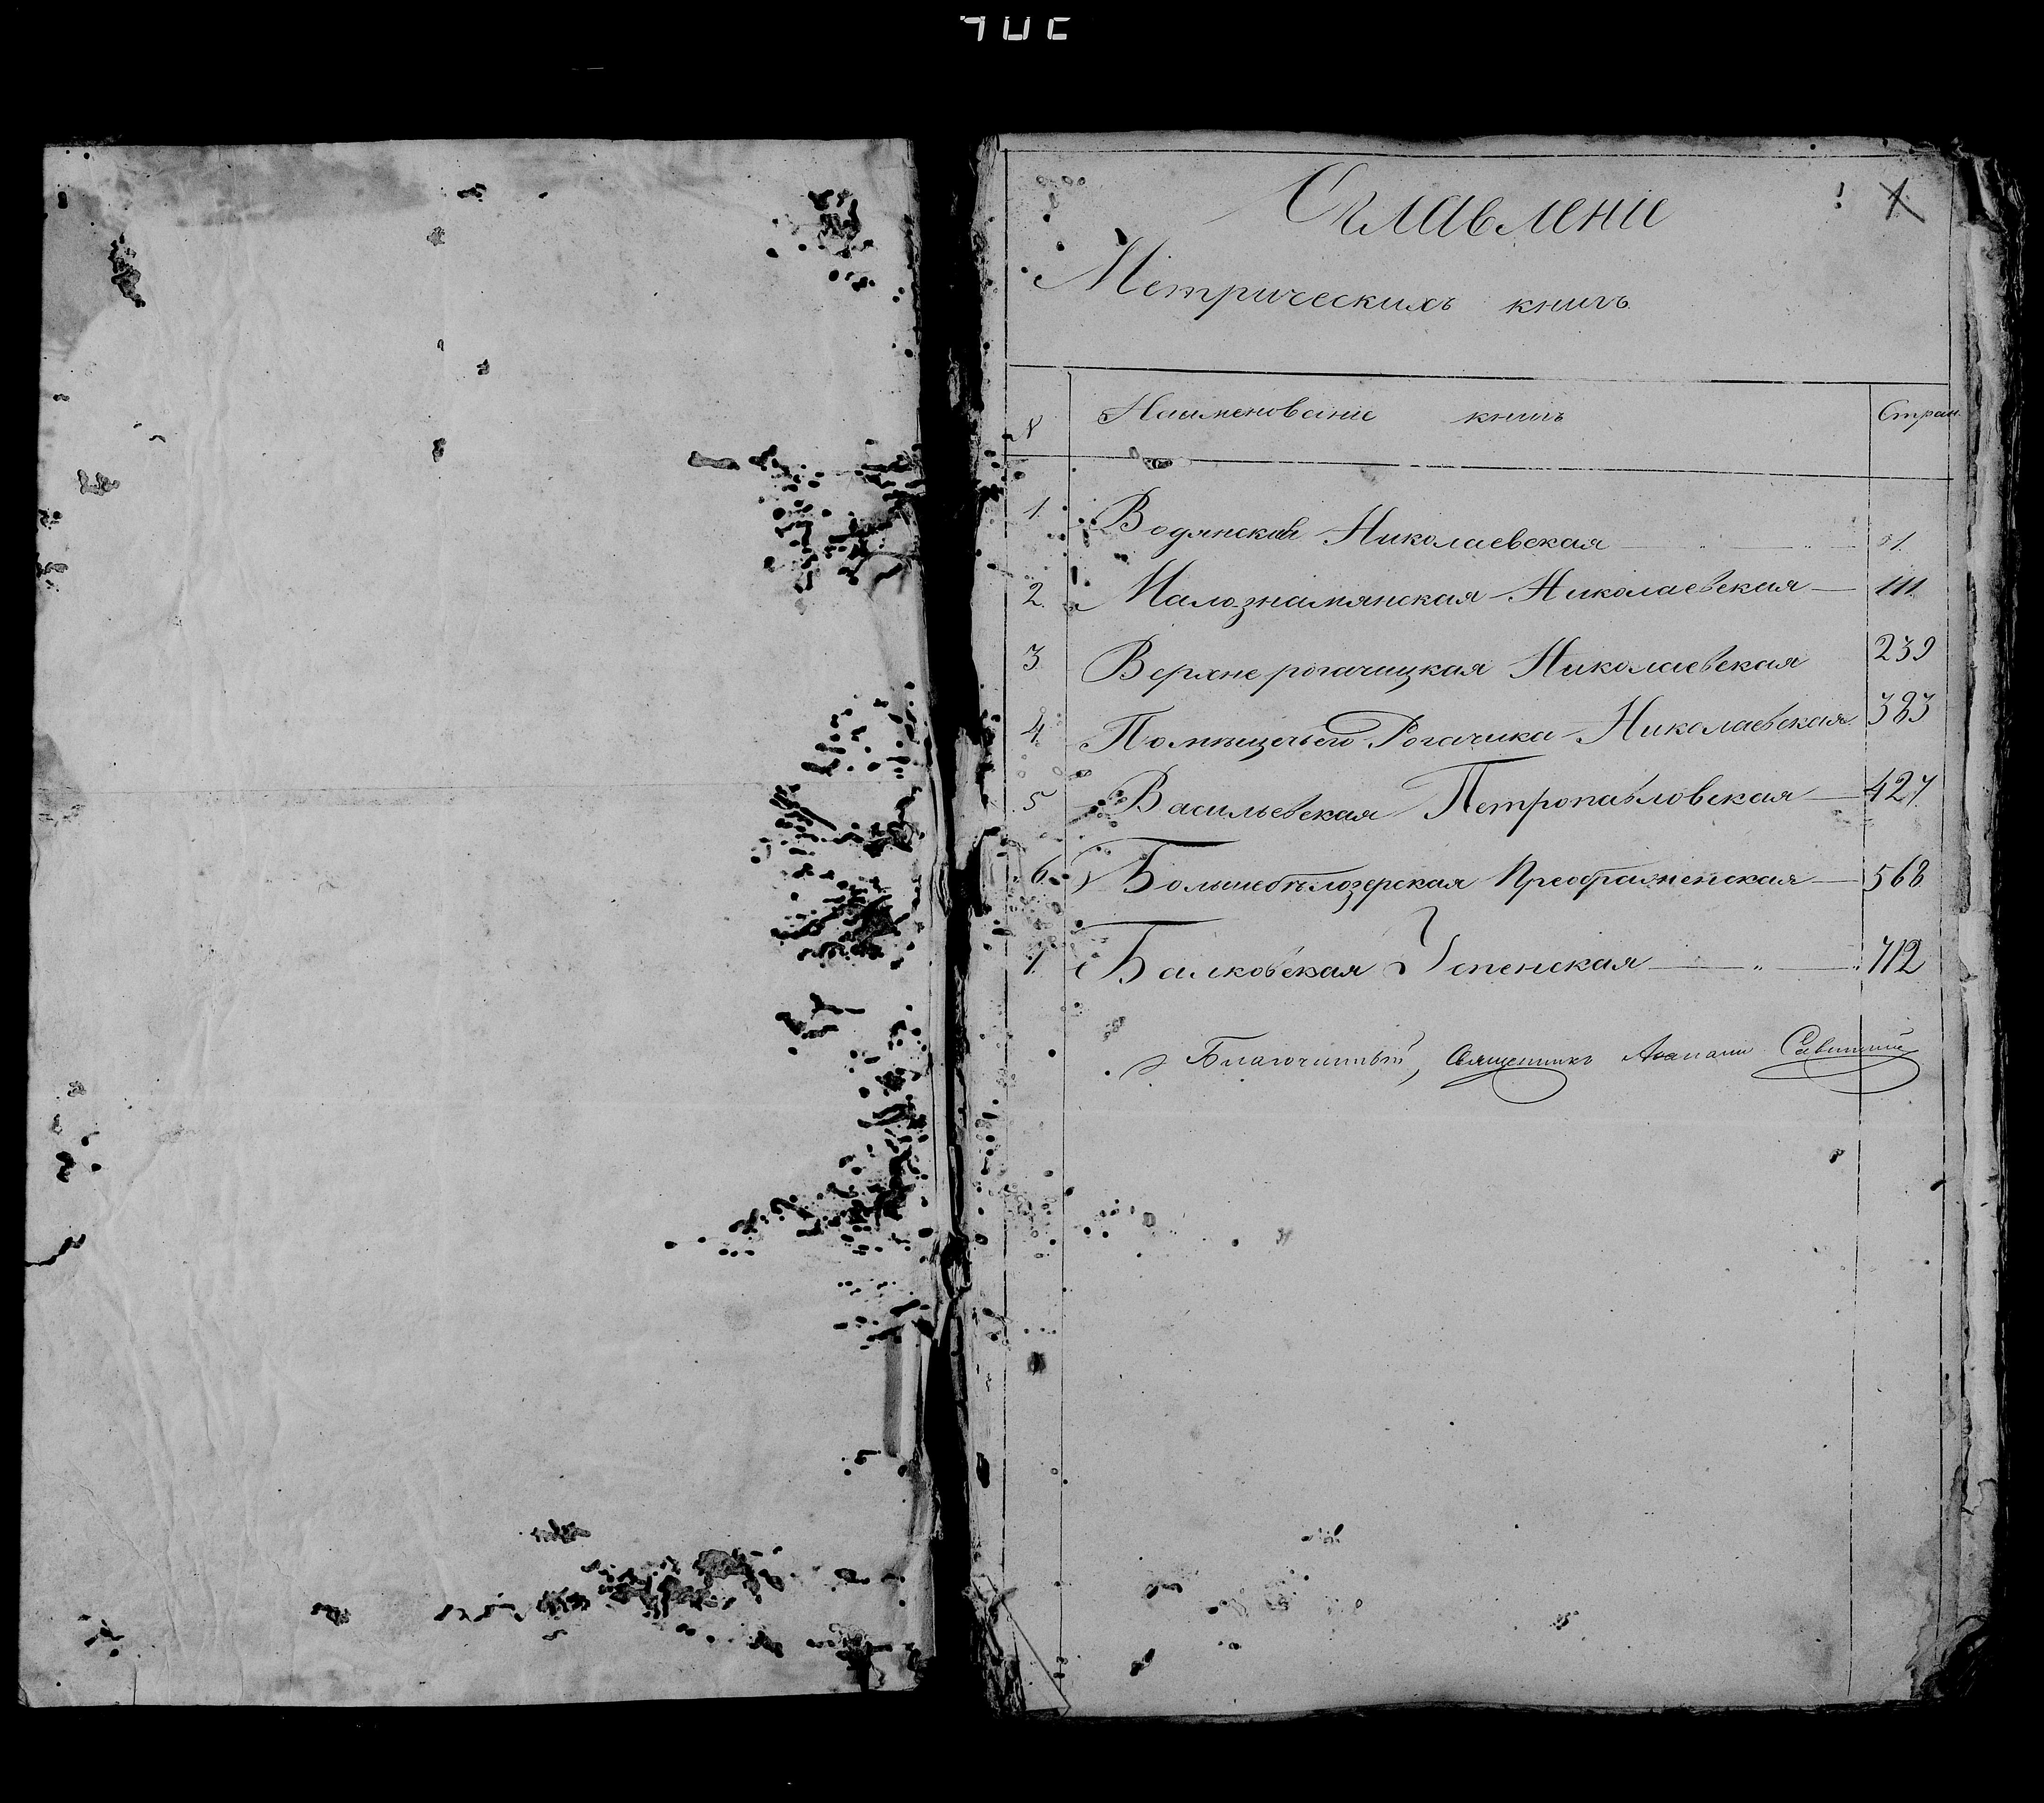 Оглавленіе
Метрическихъ книгъ.
№ Наименованіе книгъ Стран.
1. Водянская Николаевская 1.
2. Малознамянская Николаевская 111.
3. Верхнерогачицкая Николаевская 239
4. Помѣщечьего Рогачика Николаевская. 383
5 Васильевская Петропавловская 427.
6. Большебѣлозерская Преображенская 568
7. Балковская Успенская 712
Благочинный, Священникъ